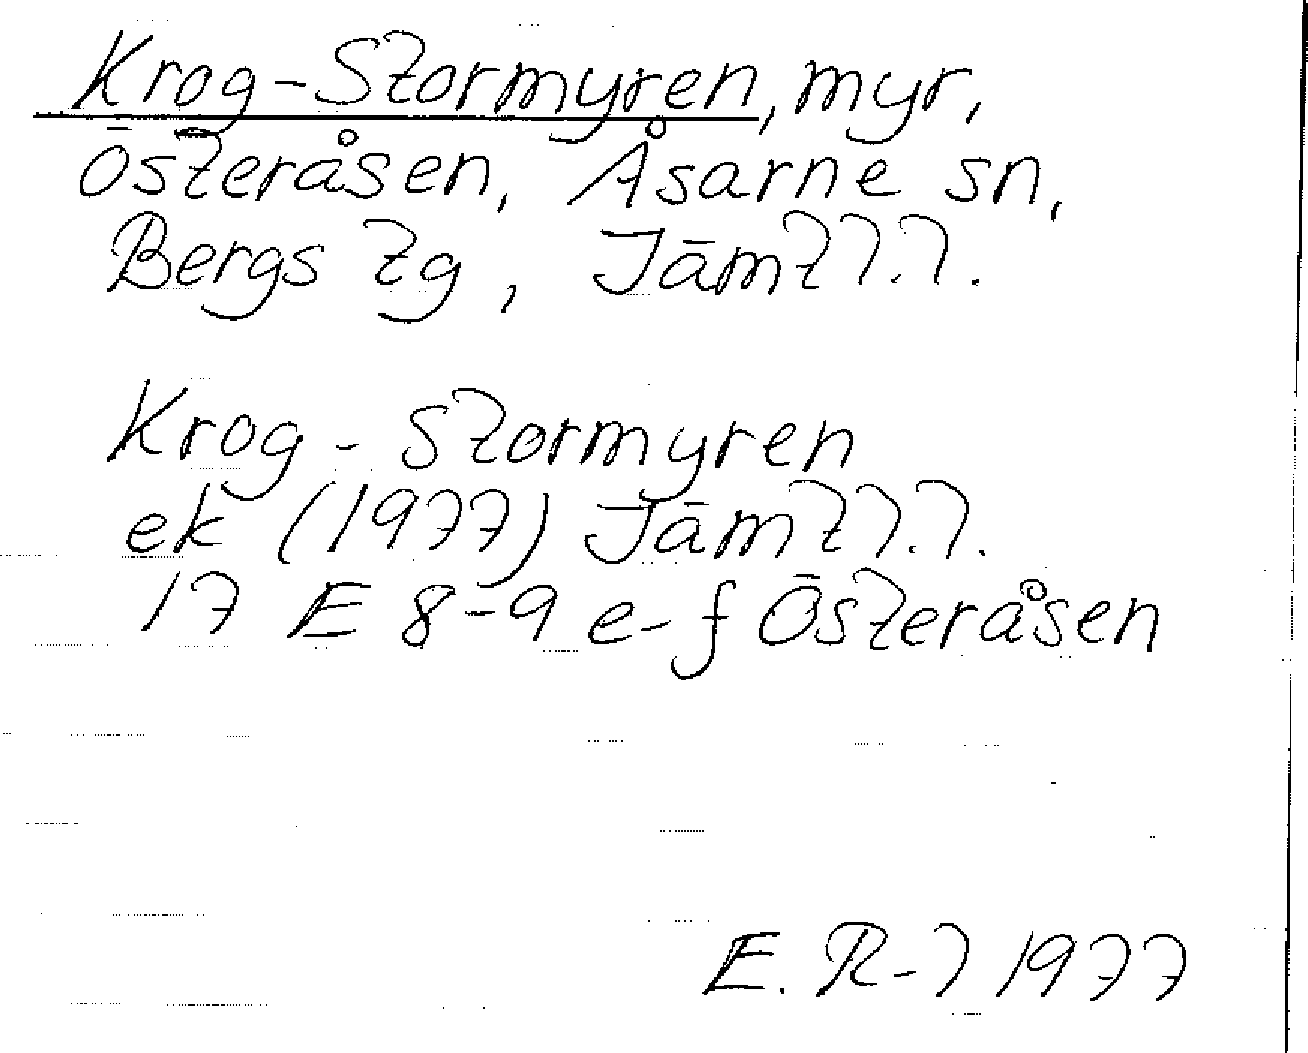 Krog-Stormyren, myr,
Österåsen, Åsarne sn,
Bergs tg, Jämtl.l.
Krog-Stormyren
ek (1977) Jämtl.l.
17 E 8-9 e-f Österåsen
E. R-l 1977